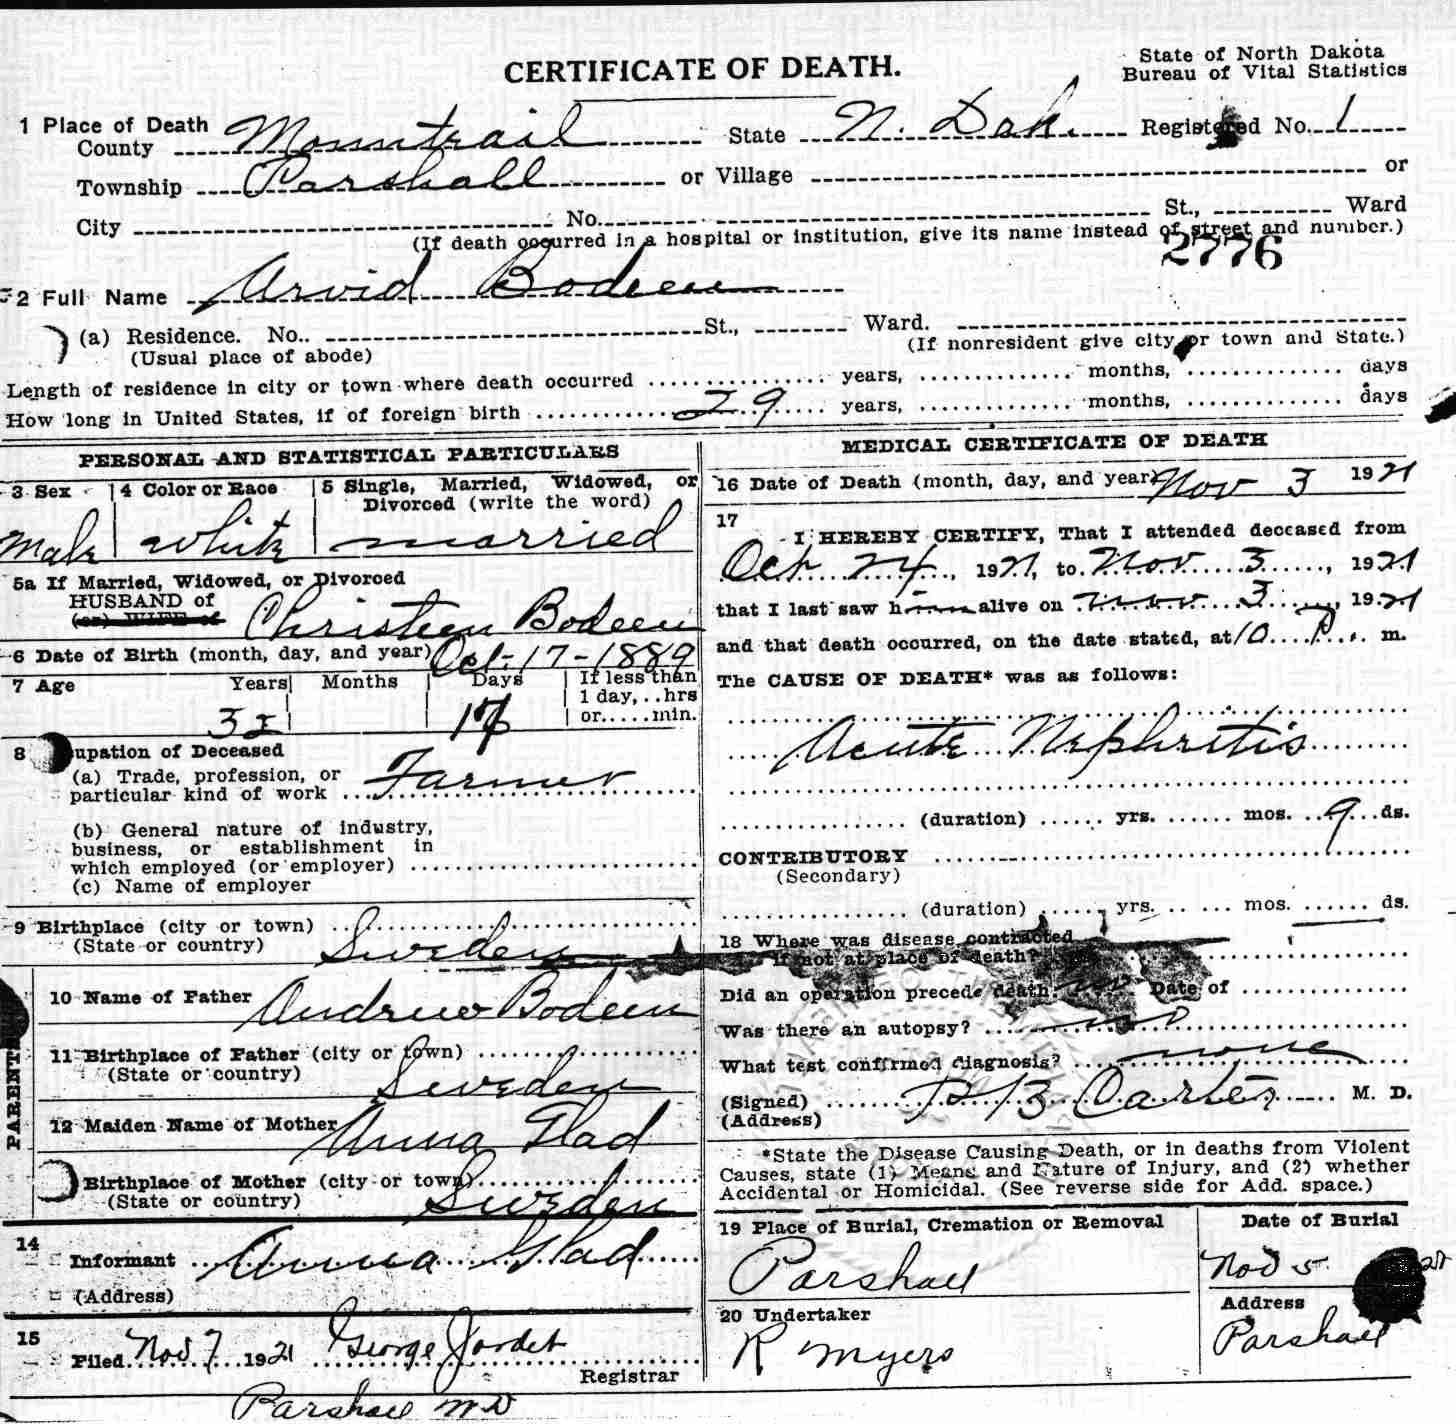 CERTIFICATE OF DEATH.
State of North Dakota
Bureau of Vital Statistics
1 Place of Death
County Mountrail State N. Dak. Registered No. 1
Township Parshall or Village or
City No. St., Ward
(If death occurred in a hospital or institution, give its name instead of street and number.)
2776
2 Full Name Arvid Bodeen
(a) Residence. No.. St., Ward.
(Usual place of abode) (If nonresident give city or town and State.)
Length of residence in city or town where death occurred years, months, days
How long in United States, if of foreign birth 29 years, months, days
PERSONAL AND STATISTICAL PARTICULARS
3 Sex 4 Color or Race 5 Single, Married, Widowed, or
Divorced (write the word)
Male white married
5a If Married, Widowed, or Divorced
HUSBAND of
(or) WIFE of Christeen Bodeen
6 Date of Birth (month, day, and year) Oct-17-1889
7 Age Years Months Days If less than
1 day, .. hrs
32 17 or..... min.
8 upation of Deceased
(a) Trade, profession, or
particular kind of work Farmer
(b) General nature of industry,
business, or establishment in
which employed (or employer)
(c) Name of employer
9 Birthplace (city or town)
(State or country) Sweden
PARENTS
10 Name of Father Andrew Bodeen
11 Birthplace of Father (city or town)
(State or country) Sweden
12 Maiden Name of Mother Anna Glad
Birthplace of Mother (city or town)
(State or country) Sweden
14
Informant Anna Glad
(Address)
15
Filed Nov 7 1921 George Jordet
Registrar
Parshall ND
MEDICAL CERTIFICATE OF DEATH
16 Date of Death (month, day, and year) Nov 3 1921
17
I HEREBY CERTIFY, That I attended deceased from
Oct 24, 1921, to Nov 3, 1921
that I last saw him alive on Nov 3, 1921
and that death occurred, on the date stated, at 10 P. m.
The CAUSE OF DEATH* was as follows:
Acute Nephritis
(duration) yrs. mos. 9 ds.
CONTRIBUTORY
(Secondary)
(duration) yrs. mos. ds.
18 Where was disease contracted
if not at place of death?
Did an operation precede death? no Date of
Was there an autopsy? no
What test confirmed diagnosis? none
(Signed) B Carter M. D.
(Address)
*State the Disease Causing Death, or in deaths from Violent
Causes, state (1) Means and Nature of Injury, and (2) whether
Accidental or Homicidal. (See reverse side for Add. space.)
19 Place of Burial, Cremation or Removal Date of Burial
Parshall Nov 5 21
20 Undertaker Address
R Myers Parshall